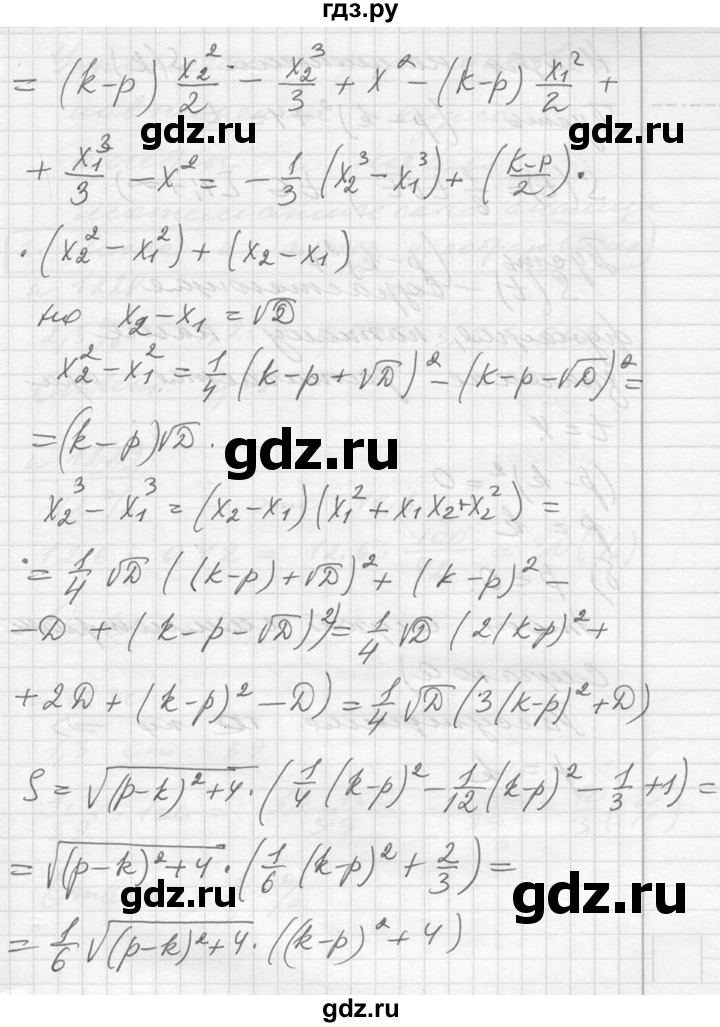 гдз.ру
= (k-p) x₂²/2 - x₂³/3 + x² - (k-p) x₁²/2 +
gdz.ru gdz.ru
+ x₁³/3 - x² = - 1/3 (x₂³ - x₁³) + (k-p/2) ·
· (x₂² - x₁²) + (x₂ - x₁)
но x₂ - x₁ = √D
x₂² - x₁² = 1/4 (k-p+√D)² - (k-p-√D)² =
= (k-p)√D .
gdz.ru
x₂³ - x₁³ = (x₂ - x₁)(x₁² + x₁x₂ + x₂²) =
= 1/4 √D ((k-p)+√D)² + (k-p)² -
- D + (k-p-√D)²) = 1/4 √D (2(k-p)² +
+ 2D + (k-p)² - D) = 1/4 √D (3(k-p)² + D)
S = √((p-k)²+4) · (1/4 (k-p)² - 1/12 (k-p)² - 1/3 + 1) =
= √((p-k)²+4) · (1/6 (k-p)² + 2/3) =
gdz.ru gdz.ru
= 1/6 √((p-k)²+4) · ((k-p)² + 4)
gdz.ru